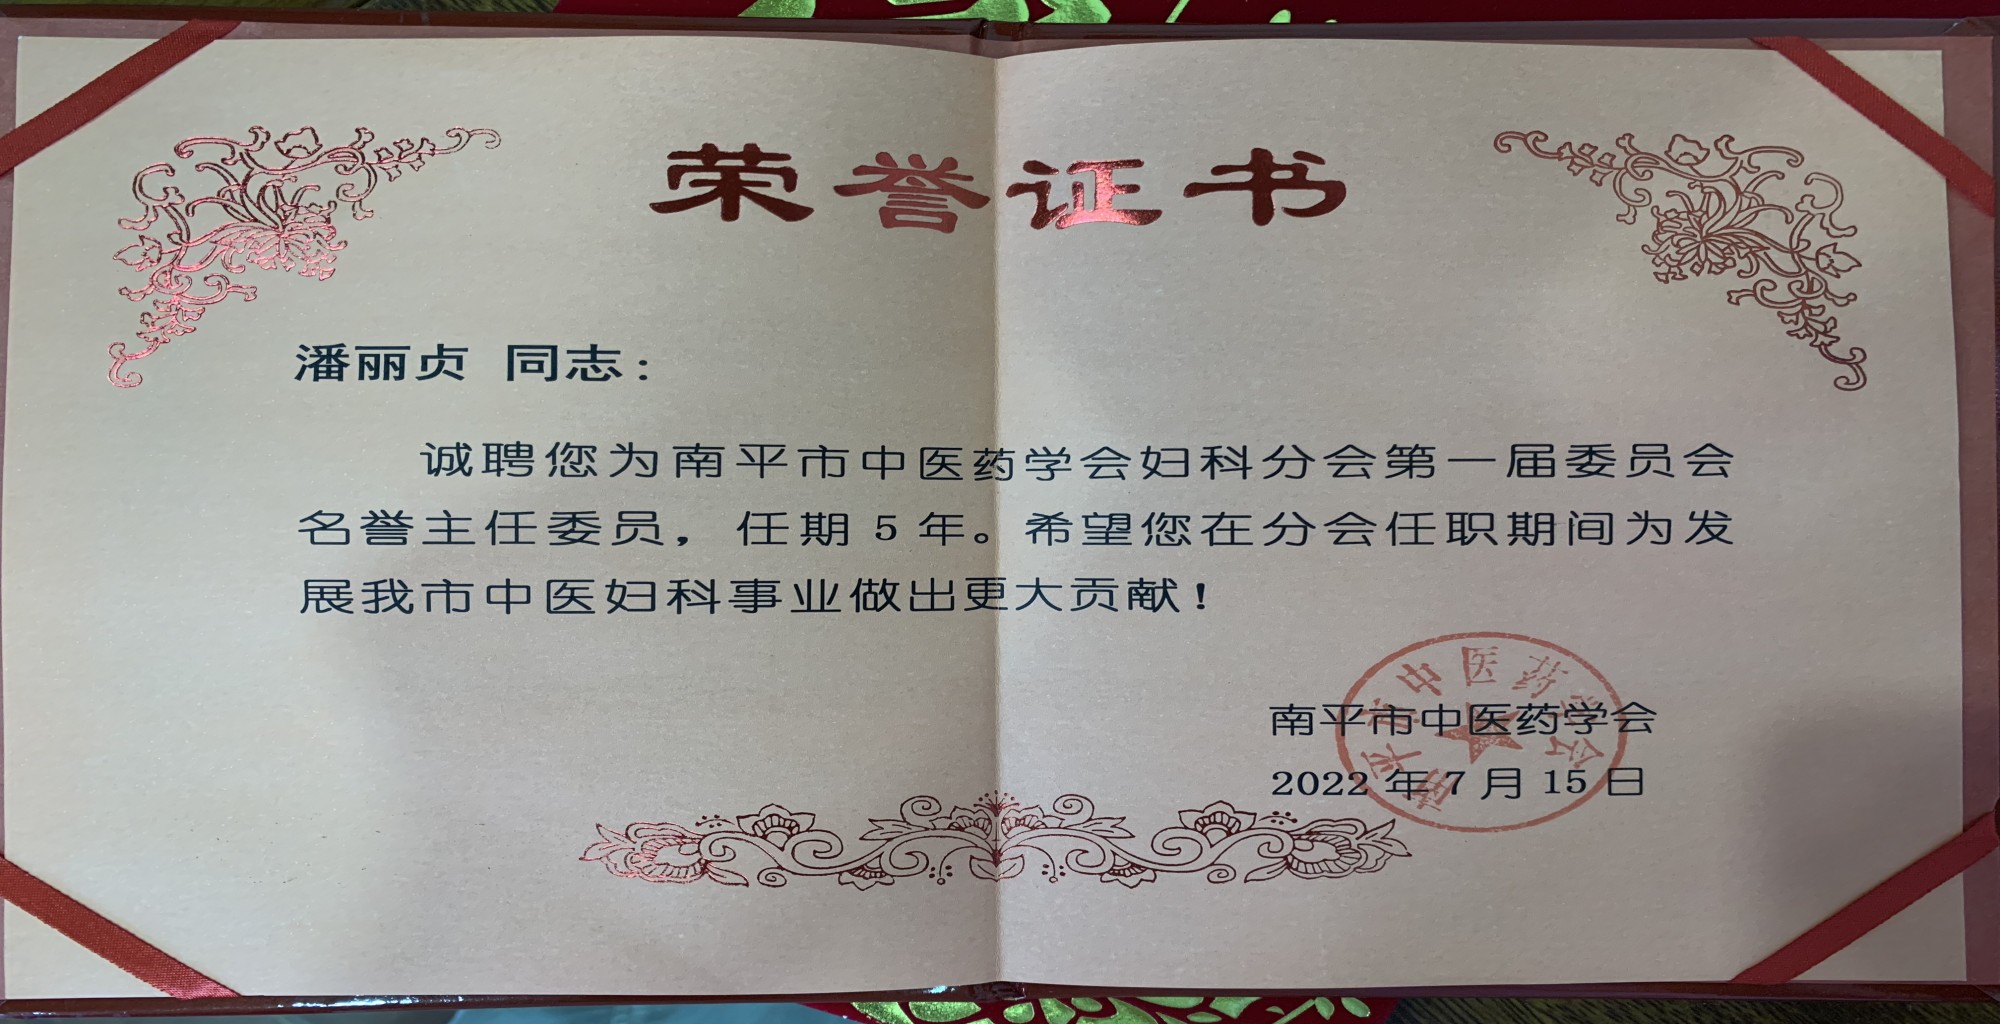 荣誉证书
潘丽贞 同志：
诚聘您为南平市中医药学会妇科分会第一届委员会
名誉主任委员，任期 5 年。希望您在分会任职期间为发
展我市中医妇科事业做出更大贡献！
南平市中医药学会
2022 年 7 月 15 日
南平市中医药学会